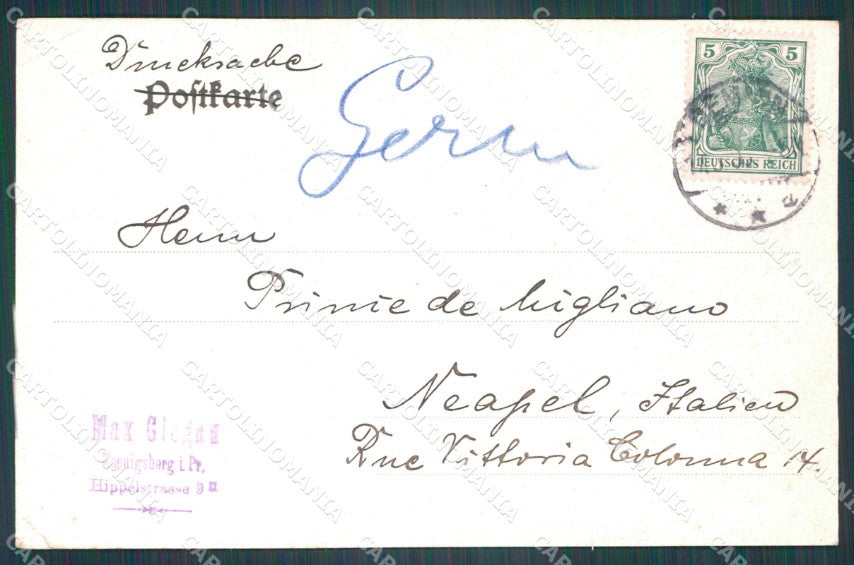 Drucksache
Postkarte
Germ
5 5
DEUTSCHES REICH
Herrn
Prince de Migliano
Neapel, Italien
Rue Vittoria Colonna 14.
Max
Koenigsberg i. Pr.
Hippelstrasse 9 II
CARTOLINOMANIA